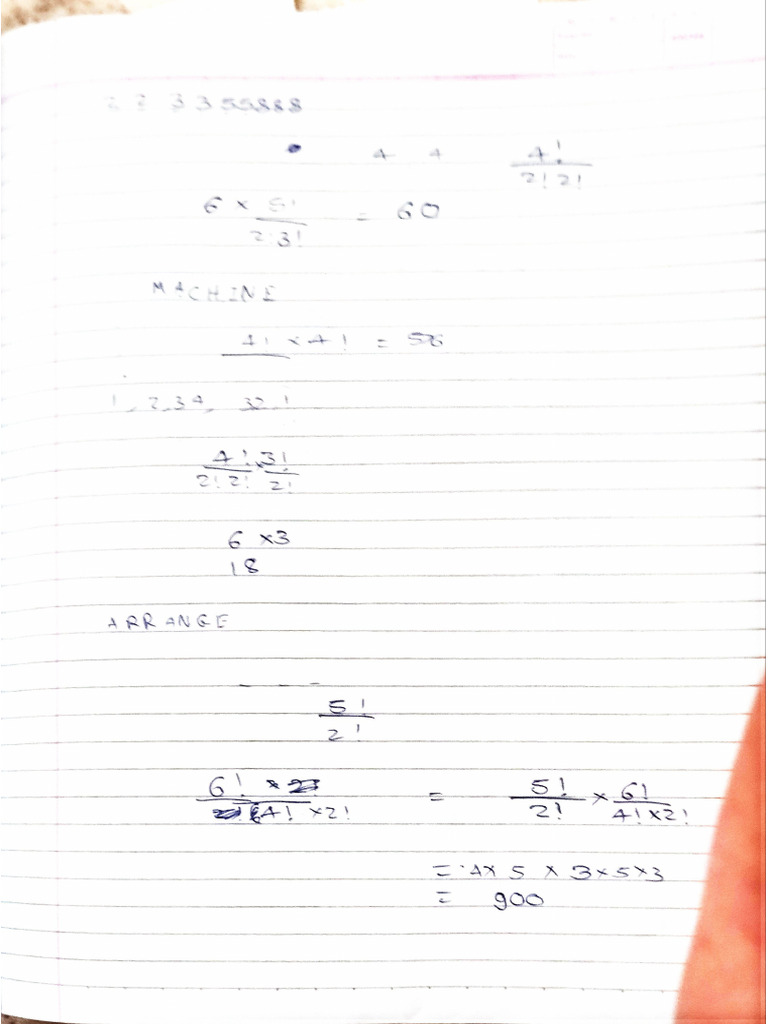 2 2 3 3 55888
4 4 4! / 2! 2!
6 × 5! / 2! 3! = 60
MACHINE
4! × 4! = 576
1, 2, 3 4, 3 2 1
4! / 2! 2! × 3! / 2!
6 × 3
18
ARRANGE
5! / 2!
6! × / 4! × 2! = 5! / 2! × 6! / 4! × 2!
= 4 × 5 × 3 × 5 × 3
= 900